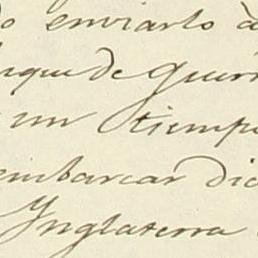 enviarlo à
de Guerr
un tiempo
embarcar dic
Ynglaterra